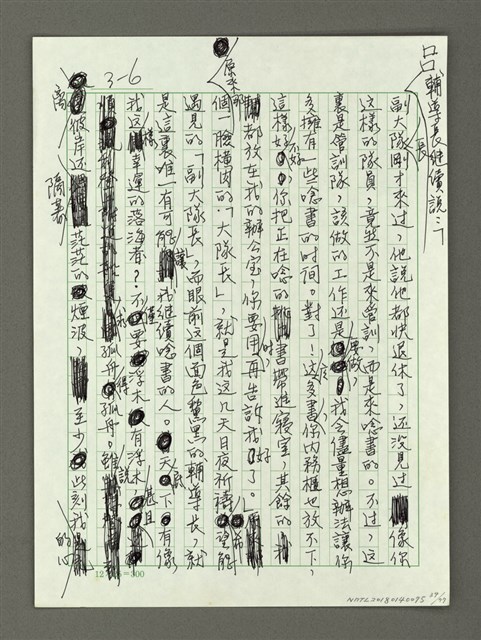 呂輔導長繼續說：「
副大隊長剛才來過，他說他都快退休了，还沒見过像你
这樣的隊員，竟然不是來管訓，而是來唸書的。不过，这
裏是管訓隊，該做的工作还是要做，我会儘量想辦法讓你
多擁有一些唸書的时间。對了！这多書你內務櫃也放不下，
這樣好不好，你把正在唸的書帶進寢室，其餘的
都放在我的辦公室，你要用时，再告訴我好了。」
原來那個一臉橫肉的「大隊長」，就是我这几天日夜祈禱希望能
遇見的「副大隊長」，而眼前这個面色黧黑的輔導長，就
是這裏唯一有可能讓我繼續唸書的人。天底下有像
我这樣幸運的落海者？不僅要浮木有浮木，甚且
孤舟得孤舟。雖說
離彼岸还隔著茫茫的煙波，至少此刻我的心
3-6
12×25=300
NMTL20180140095